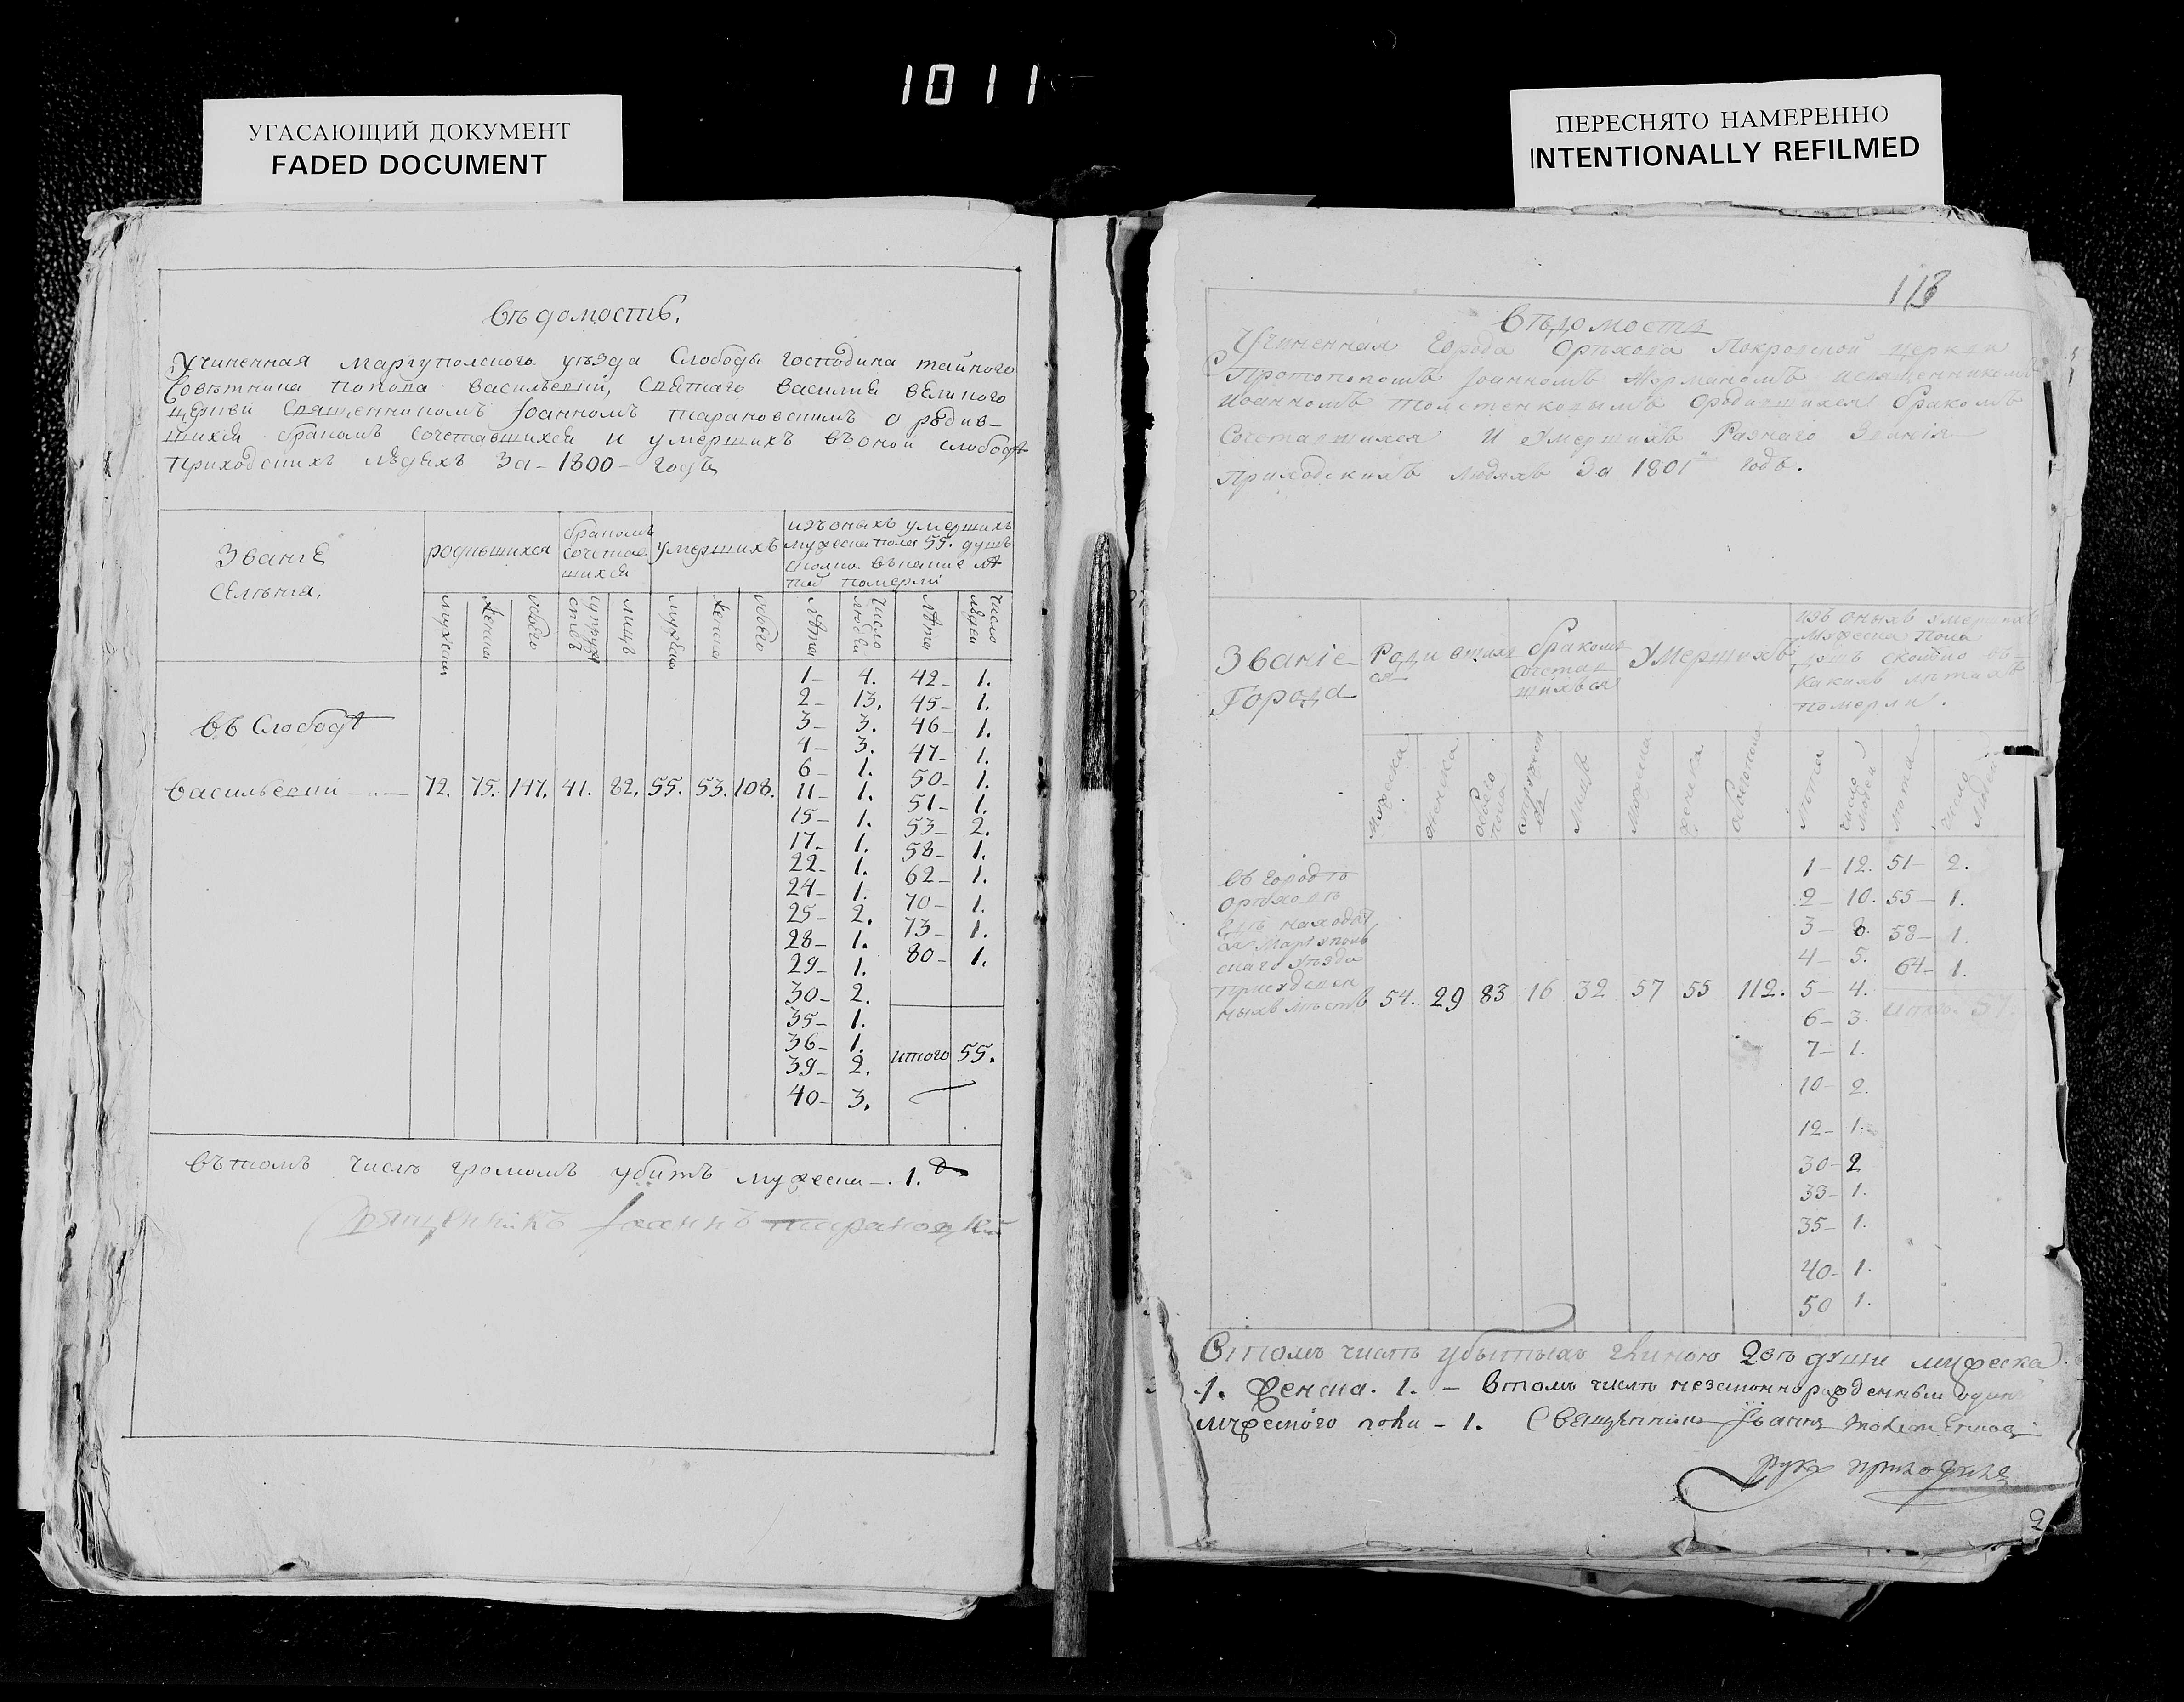 1011
УГАСАЮЩИЙ ДОКУМЕНТ
FADED DOCUMENT
ПЕРЕСНЯТО НАМЕРЕННО
INTENTIONALLY REFILMED
Вѣдомость.
Учиненная мариуполского уѣзда Слободы господина тайного
Совѣтника попова васильевки, святаго василия великого
церкви священникомъ Іоанномъ тарановскимъ о родив-
шихся бракомъ сочетавшихся и умершихъ въ оной слободѣ
приходскихъ людехъ За - 1800 - годъ
Званіе
селенія,
родившихся
бракомъ
сочетав
шихся
умершихъ
изъ оныхъ умершихъ
мужеска пола 55. душъ
померли
мужеска
женска
обоего
супруж
ствъ
лицъ
мужеска
женска
обоего
лѣта
число
людей
лѣта
число
людей
въ Слободѣ
васильевки - 72. 75. 147. 41. 82. 55. 53. 108.
1- 4. 42- 1.
2- 13. 45- 1.
3- 3. 46- 1.
4- 3. 47- 1.
6- 1. 50- 1.
11- 1. 51- 1.
15- 1. 53- 2.
17- 1. 58- 1.
22- 1. 62- 1.
24- 1. 70- 1.
25- 2. 73- 1.
28- 1. 80- 1.
29- 1.
30- 2.
35- 1.
36- 1. итого 55.
39- 2.
40- 3.
въ томъ числѣ громомъ убитъ мужеска -. 1.
Священникъ Іоаннъ
118
Вѣдомость
Учиненная Города Орѣхова Покровской церкви
Протопопомъ Іоанномъ и священникомъ
Иоанномъ Толстенковымъ о родившихся бракомъ
Сочетавшихся и Умершихъ Разнаго Званія
Приходскихъ людяхъ За 1801 годъ.
Званіе
Города
Родивших
ся
бракомъ
сочетав
шихься
Умершихъ
изъ оныхъ умершихъ
Мужеска Пола
душъ сколко въ
какихъ лѣтахъ
померли.
мужеска
женска
обоего
пола
супружест
ва
лицъ
мужеска
женска
лѣта
число
людей
лѣта
число
людей
въ городѣ
орѣховѣ
Мариуполь
скаго уѣзда
ныхъ мѣстъ 54. 29 83 16 32 57 55 112.
1- 12. 51- 2.
2- 10. 55- 1.
3- 8. 58- 1.
4- 5. 64- 1.
5- 4. итого. 57.
6- 3.
7- 1.
10- 2.
12- 1.
30- 2
33- 1.
35- 1.
40- 1.
50 1.
Втомъ числѣ убитыхъ души мужеска
1. женска. 1. - втомъ числѣ незаконнорожденный одинъ
мужеского пола - 1. Священникъ Іоаннъ
руку приложилъ
2